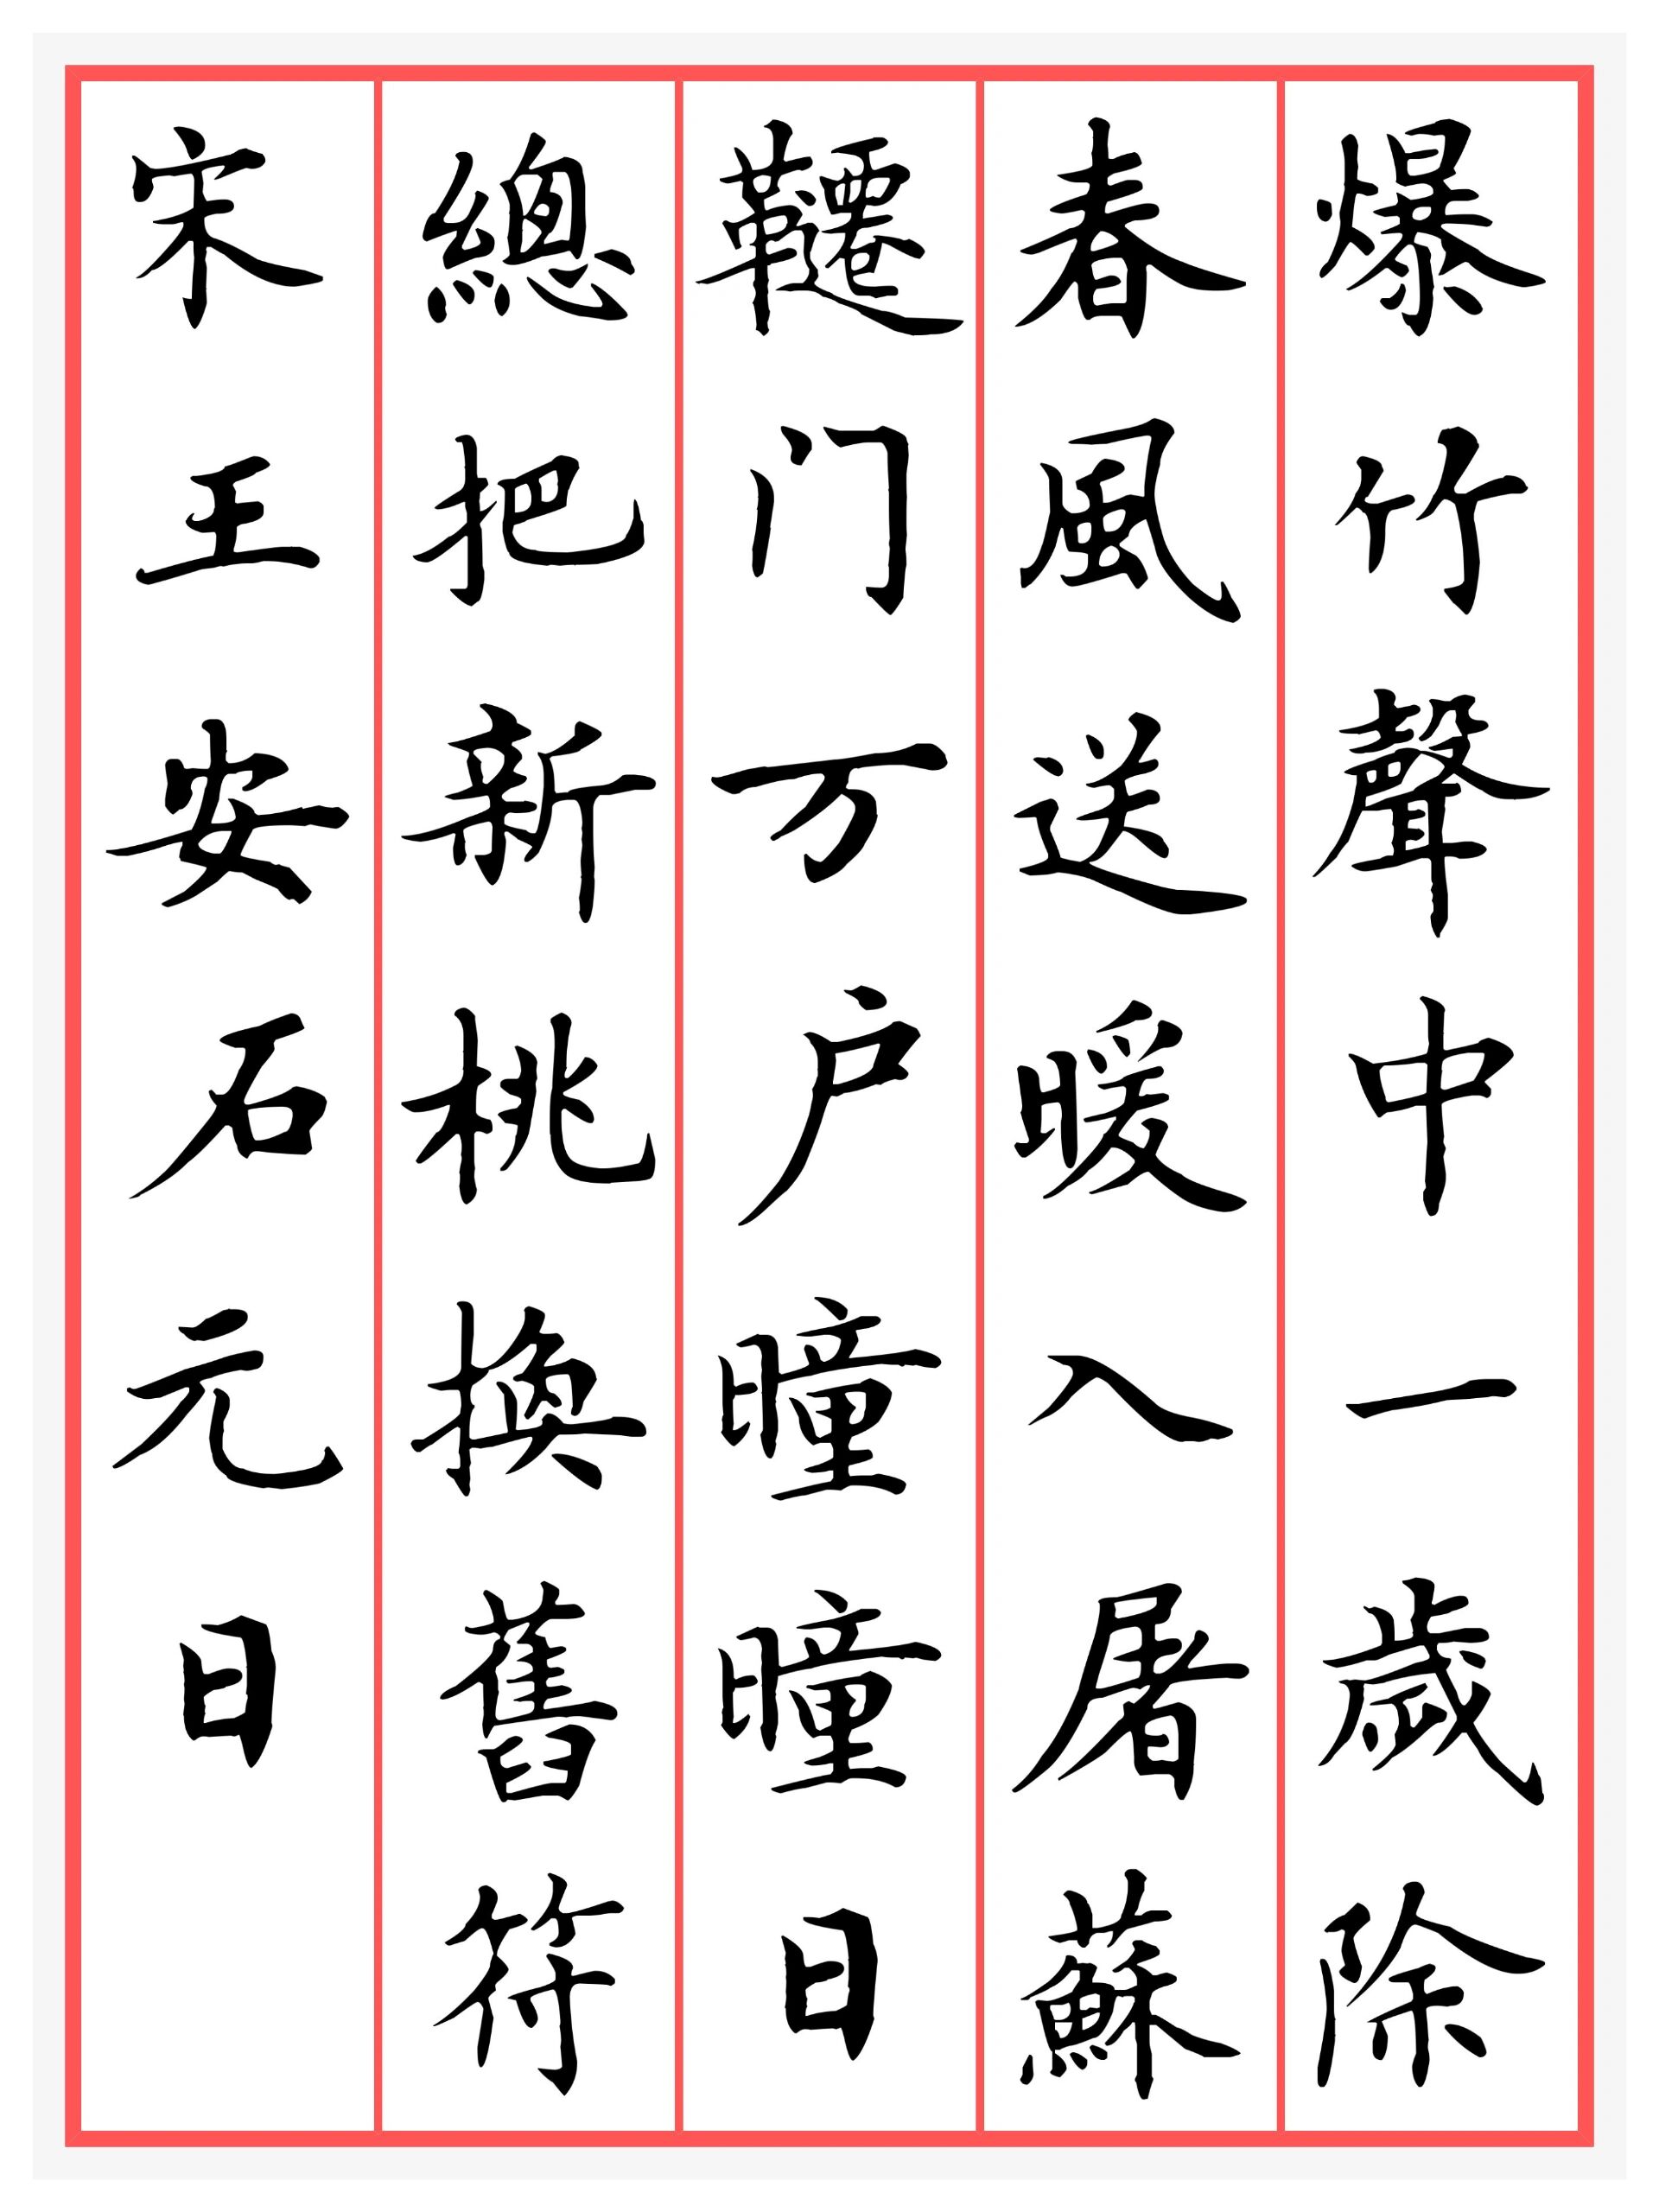 爆竹聲中一歲除
春風送暖入屠蘇
韆门万户曈曈日
總把新桃換舊符
宋王安石元日